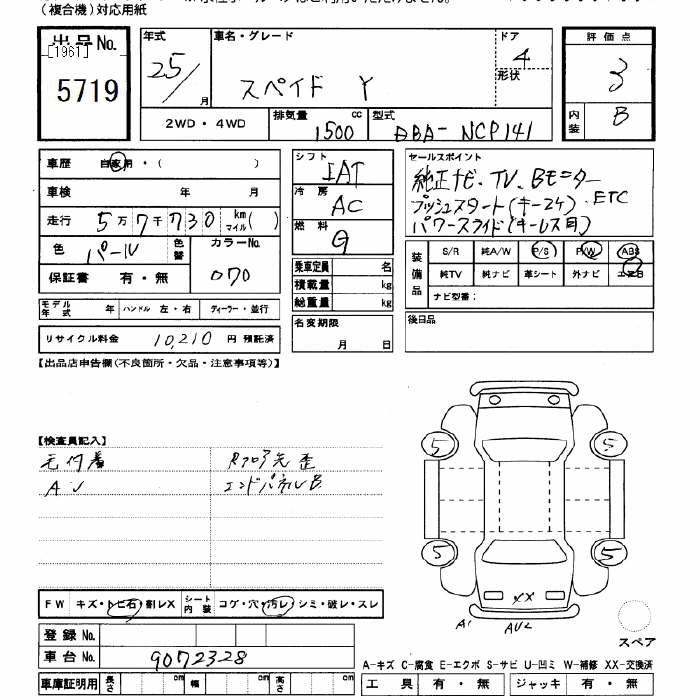 (複合機)対応用紙
出品No.
[1961]
5719
年式
25/
月
車名・グレード
スペイド Y
ドア
4
形状
評価点
3
内装
B
2WD・4WD
排気量
1500
cc
型式
DBA- NCP141
車歴
自家用・( )
車検
年 月
走行
5万7千730 km マイル( )
色
パール
色替
カラーNo.
070
保証書
有・無
モデル年式
年
ハンドル 左・右
ディーラー・並行
リサイクル料金
10,210
円 預託済
シフト
IAT
冷房
AC
燃料
G
乗車定員 名
積載量 kg
総重量 kg
名変期限
月 日
セールスポイント
純正ナビ、TV、Bモニター
プッシュスタート(キー2ケ)、ETC
パワースライド(キーレス有)
装備品
S/R 純A/W P/S P/W ABS
純TV 純ナビ 革シート 外ナビ エアB
ナビ型番:
後日品
【出品店申告欄(不良箇所・欠品・注意事項等)】
【検査員記入】
毛付着
AU
Rフロア先歪
エンドパネルB
5
5
5
5
XX
A1
AU2
スペア
FW
キズ・トビ石・割レX
シート内装
コゲ・穴・汚レ・シミ・破レ・スレ
登録 No.
車台 No.
9072328
車庫証明用
長さ cm
幅 cm
高さ cm
A-キズ C-腐食 E-エクボ S-サビ U-凹ミ W-補修 XX-交換済
工具
有・無
ジャッキ
有・無